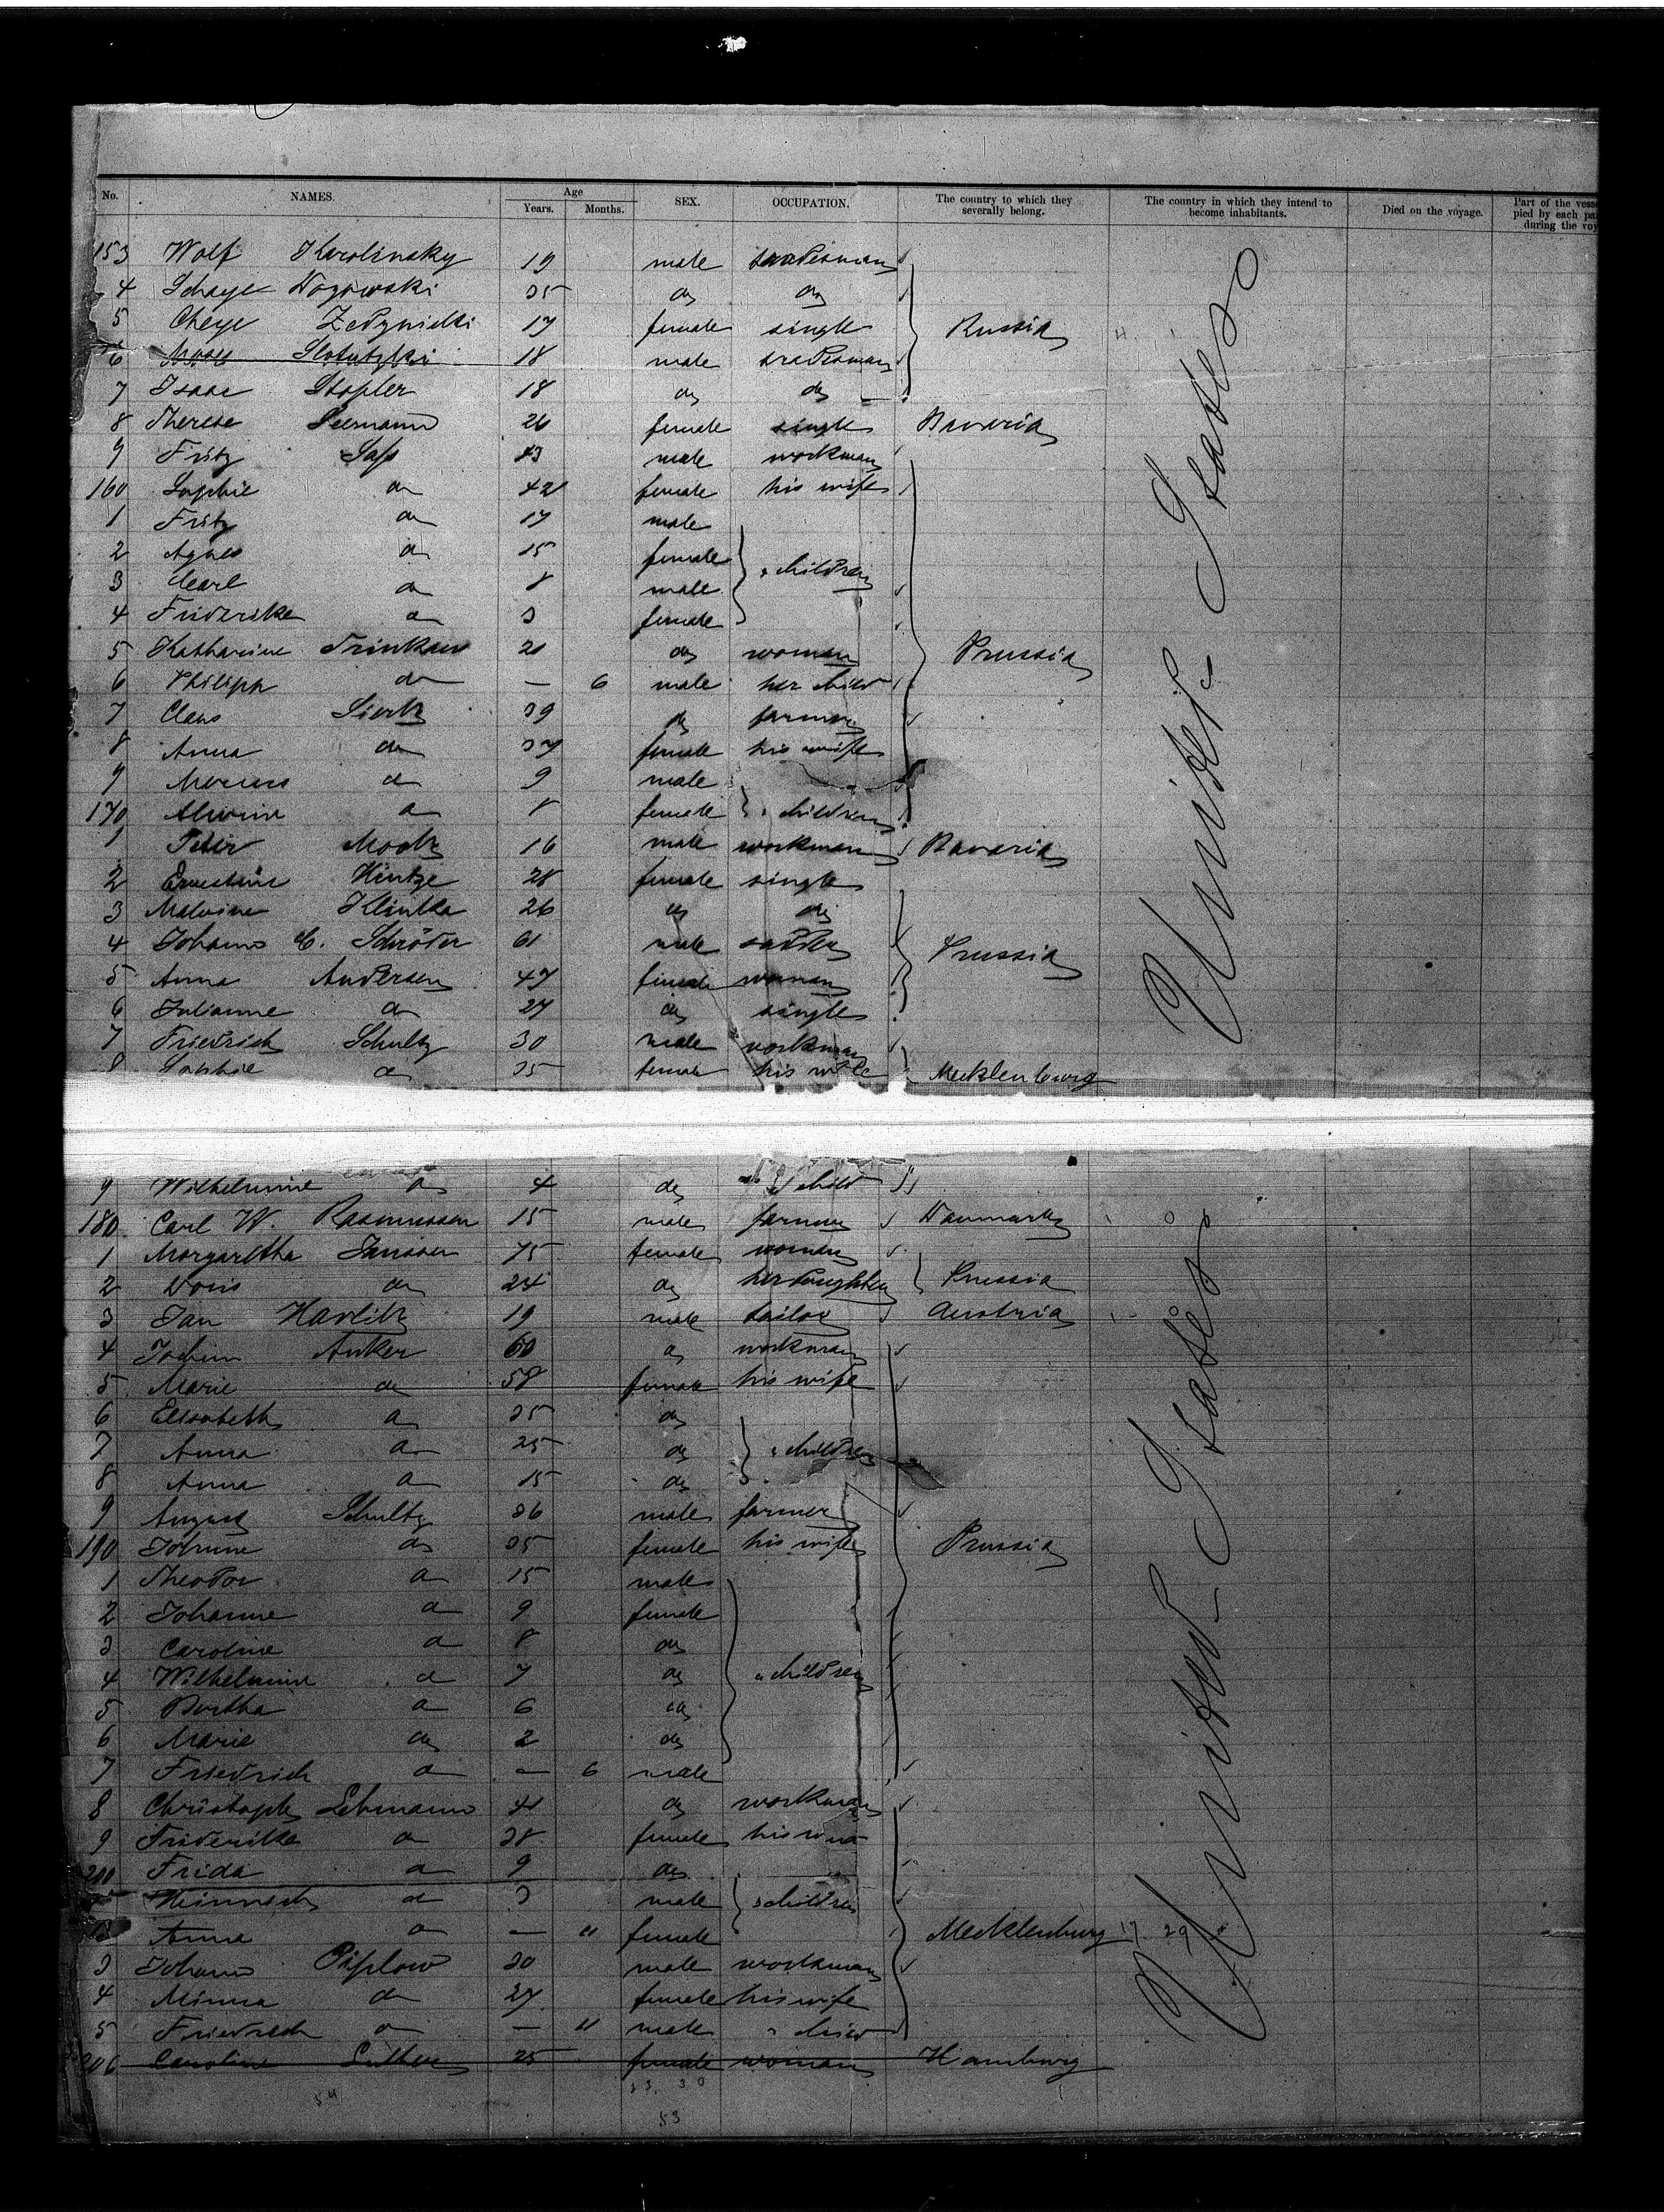 No. NAMES. Age Years. Months. SEX. OCCUPATION. The country to which they severally belong. The country in which they intend to become inhabitants. Died on the voyage. Part of the vess pied by each pa during the voy
153 Wolf Karolinsky 19 male tradesman
4 Schaye 35 do do
5 Cheye 17 female single Russia
6 Slotutzki 18 male tradesman
7 Isaac Stapler 18 do do
8 Therese Seemann 26 female single Bavaria
9 Fritz Sass 43 male workman
160 Sophie do 42 female his wife
1 Fritz do 17 male
2 Agnes do 15 female
3 Carl do 8 male children
4 Friderike do 3 female
5 Katharine Trinkaus 21 do woman Prussia
6 Philipp do — 6 male her child
7 Claus Sierk 39 do farmer
8 Anna do 37 female his wife
9 Marcus do 9 male
170 Alwine do 8 female children
1 Peter 16 male workman Bavaria
2 Ernestine Hintze 28 female single
3 Malwine Klinka 26 do do
4 Johann C. Schröder 61 male saddler Prussia
5 Anna Andersen 47 female woman
6 Julianne do 27 do single
7 Friedrich Schultz 30 male workman
8 Sophie do 35 female his wife Mecklenburg
9 Wilhelmine do 4 do child
180 Carl W. Rasmussen 15 male farmer Danmark
1 Margaretha Janssen 75 female woman
2 Doris do 24 do her daughter Prussia
3 Jan Havlik 19 male tailor Austria
4 Jochim Anker 60 do workman
5 Marie do 58 female his wife
6 Elisabeth do 35 do
7 Anna do 25 do children
8 Anna do 15 do
9 August Schultz 36 male farmer
190 do 35 female his wife Prussia
1 Theodor do 15 male
2 Johanne do 9 female
3 Caroline do 8 do
4 Wilhelmine do 7 do children
5 Bertha do 6 do
6 Marie do 2 do
7 Friedrich do — 6 male
8 Christoph Lehmann 41 do workman
9 Friderike do 38 female his wife
200 Frida do 9 do
Heinrich do 3 male children
Anna do — 11 female Mecklenburg 17 29
3 Johann Piplow 30 male workman
4 Minna do 27 female his wife
5 Friedrich do — 11 male child
206 Caroline 25 female woman Hamburg
United States
United States
54
53